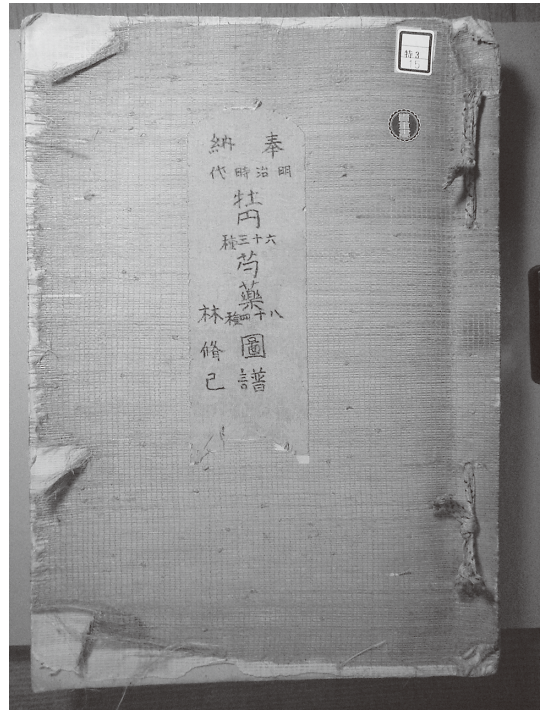 特3
15
奉納
明治時代
牡丹
六十三種
芍藥
八十四種
圖譜
林脩己